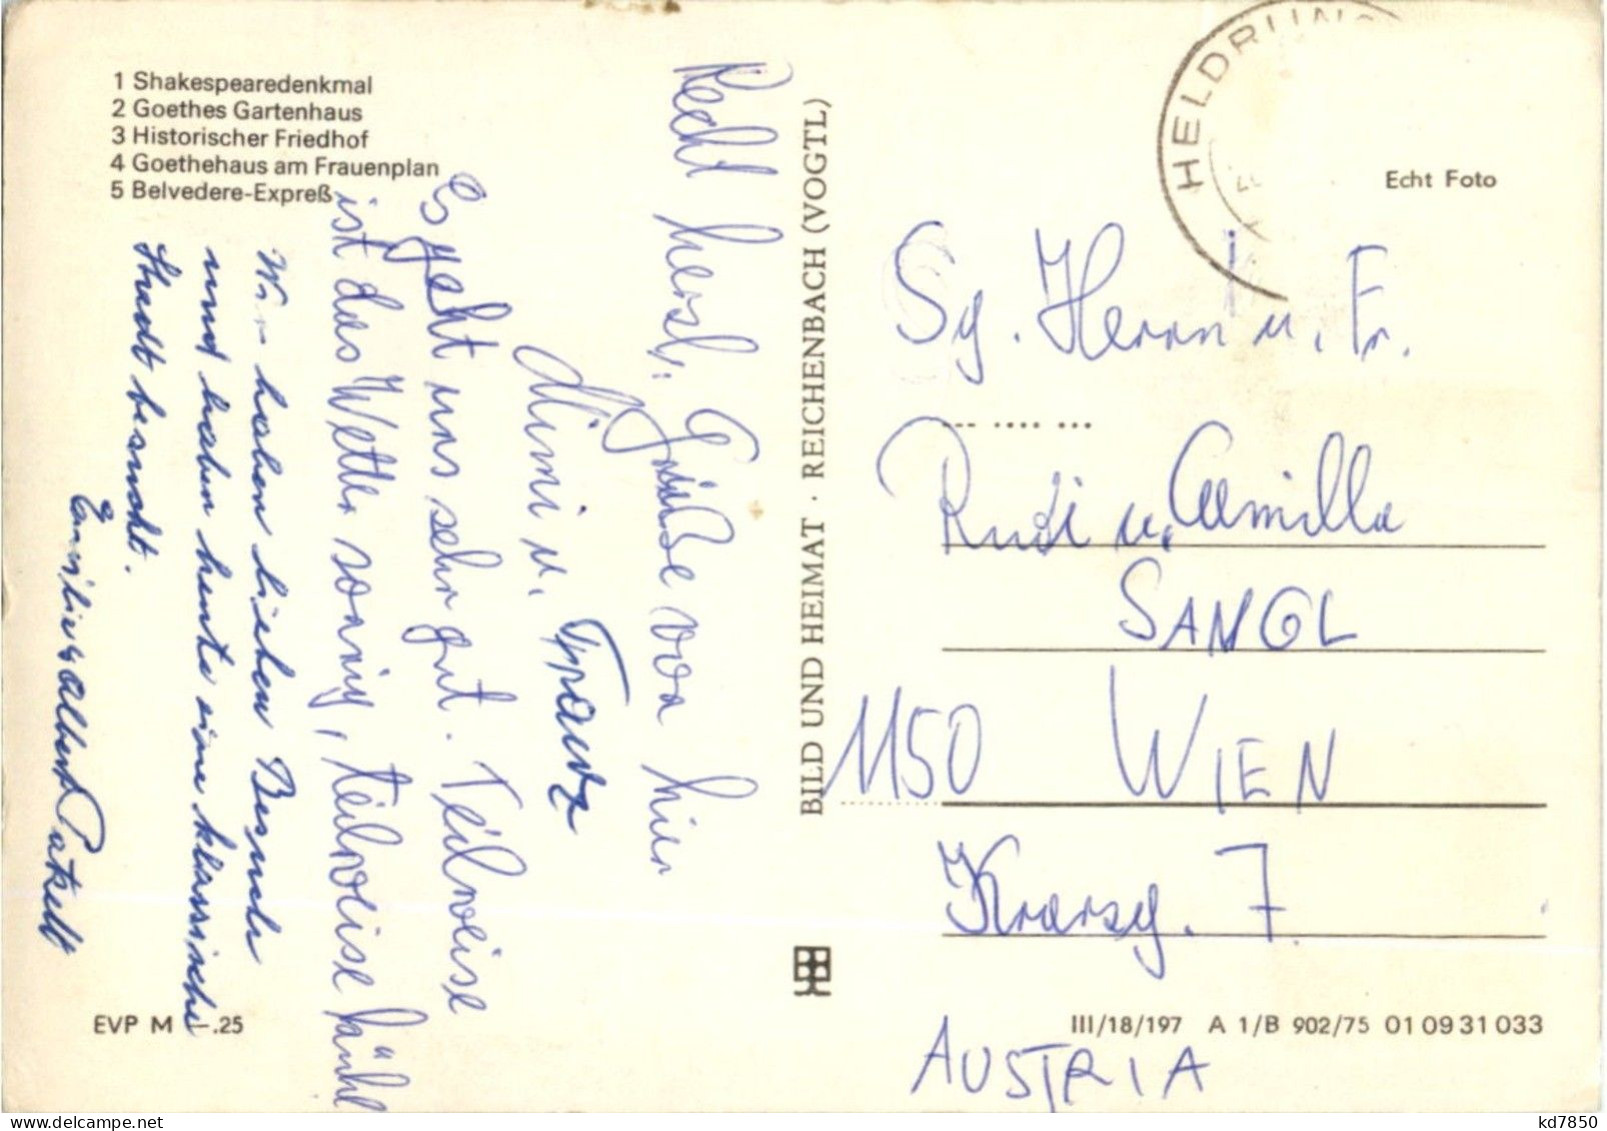 1 Shakespearedenkmal
2 Goethes Gartenhaus
3 Historischer Friedhof
4 Goethehaus am Frauenplan
5 Belvedere-Expreß
Recht herzl. Grüße von hier
Mimi u. Franz
Es geht uns sehr gut. Teilweise
ist das Wetter sonnig, teilweise kühl
Wir haben lieben Besuch
und haben heute eine klassische
Stadt besucht.
Emilie u Albert
EVP M –.25
BILD UND HEIMAT · REICHENBACH (VOGTL)
HELDRUNG
Echt Foto
Sg. Herrn u. Fr.
Rudi u. Camilla
SANGL
1150 WIEN
7
III/18/197 A 1/B 902/75 01 09 31 033
AUSTRIA
kd7850